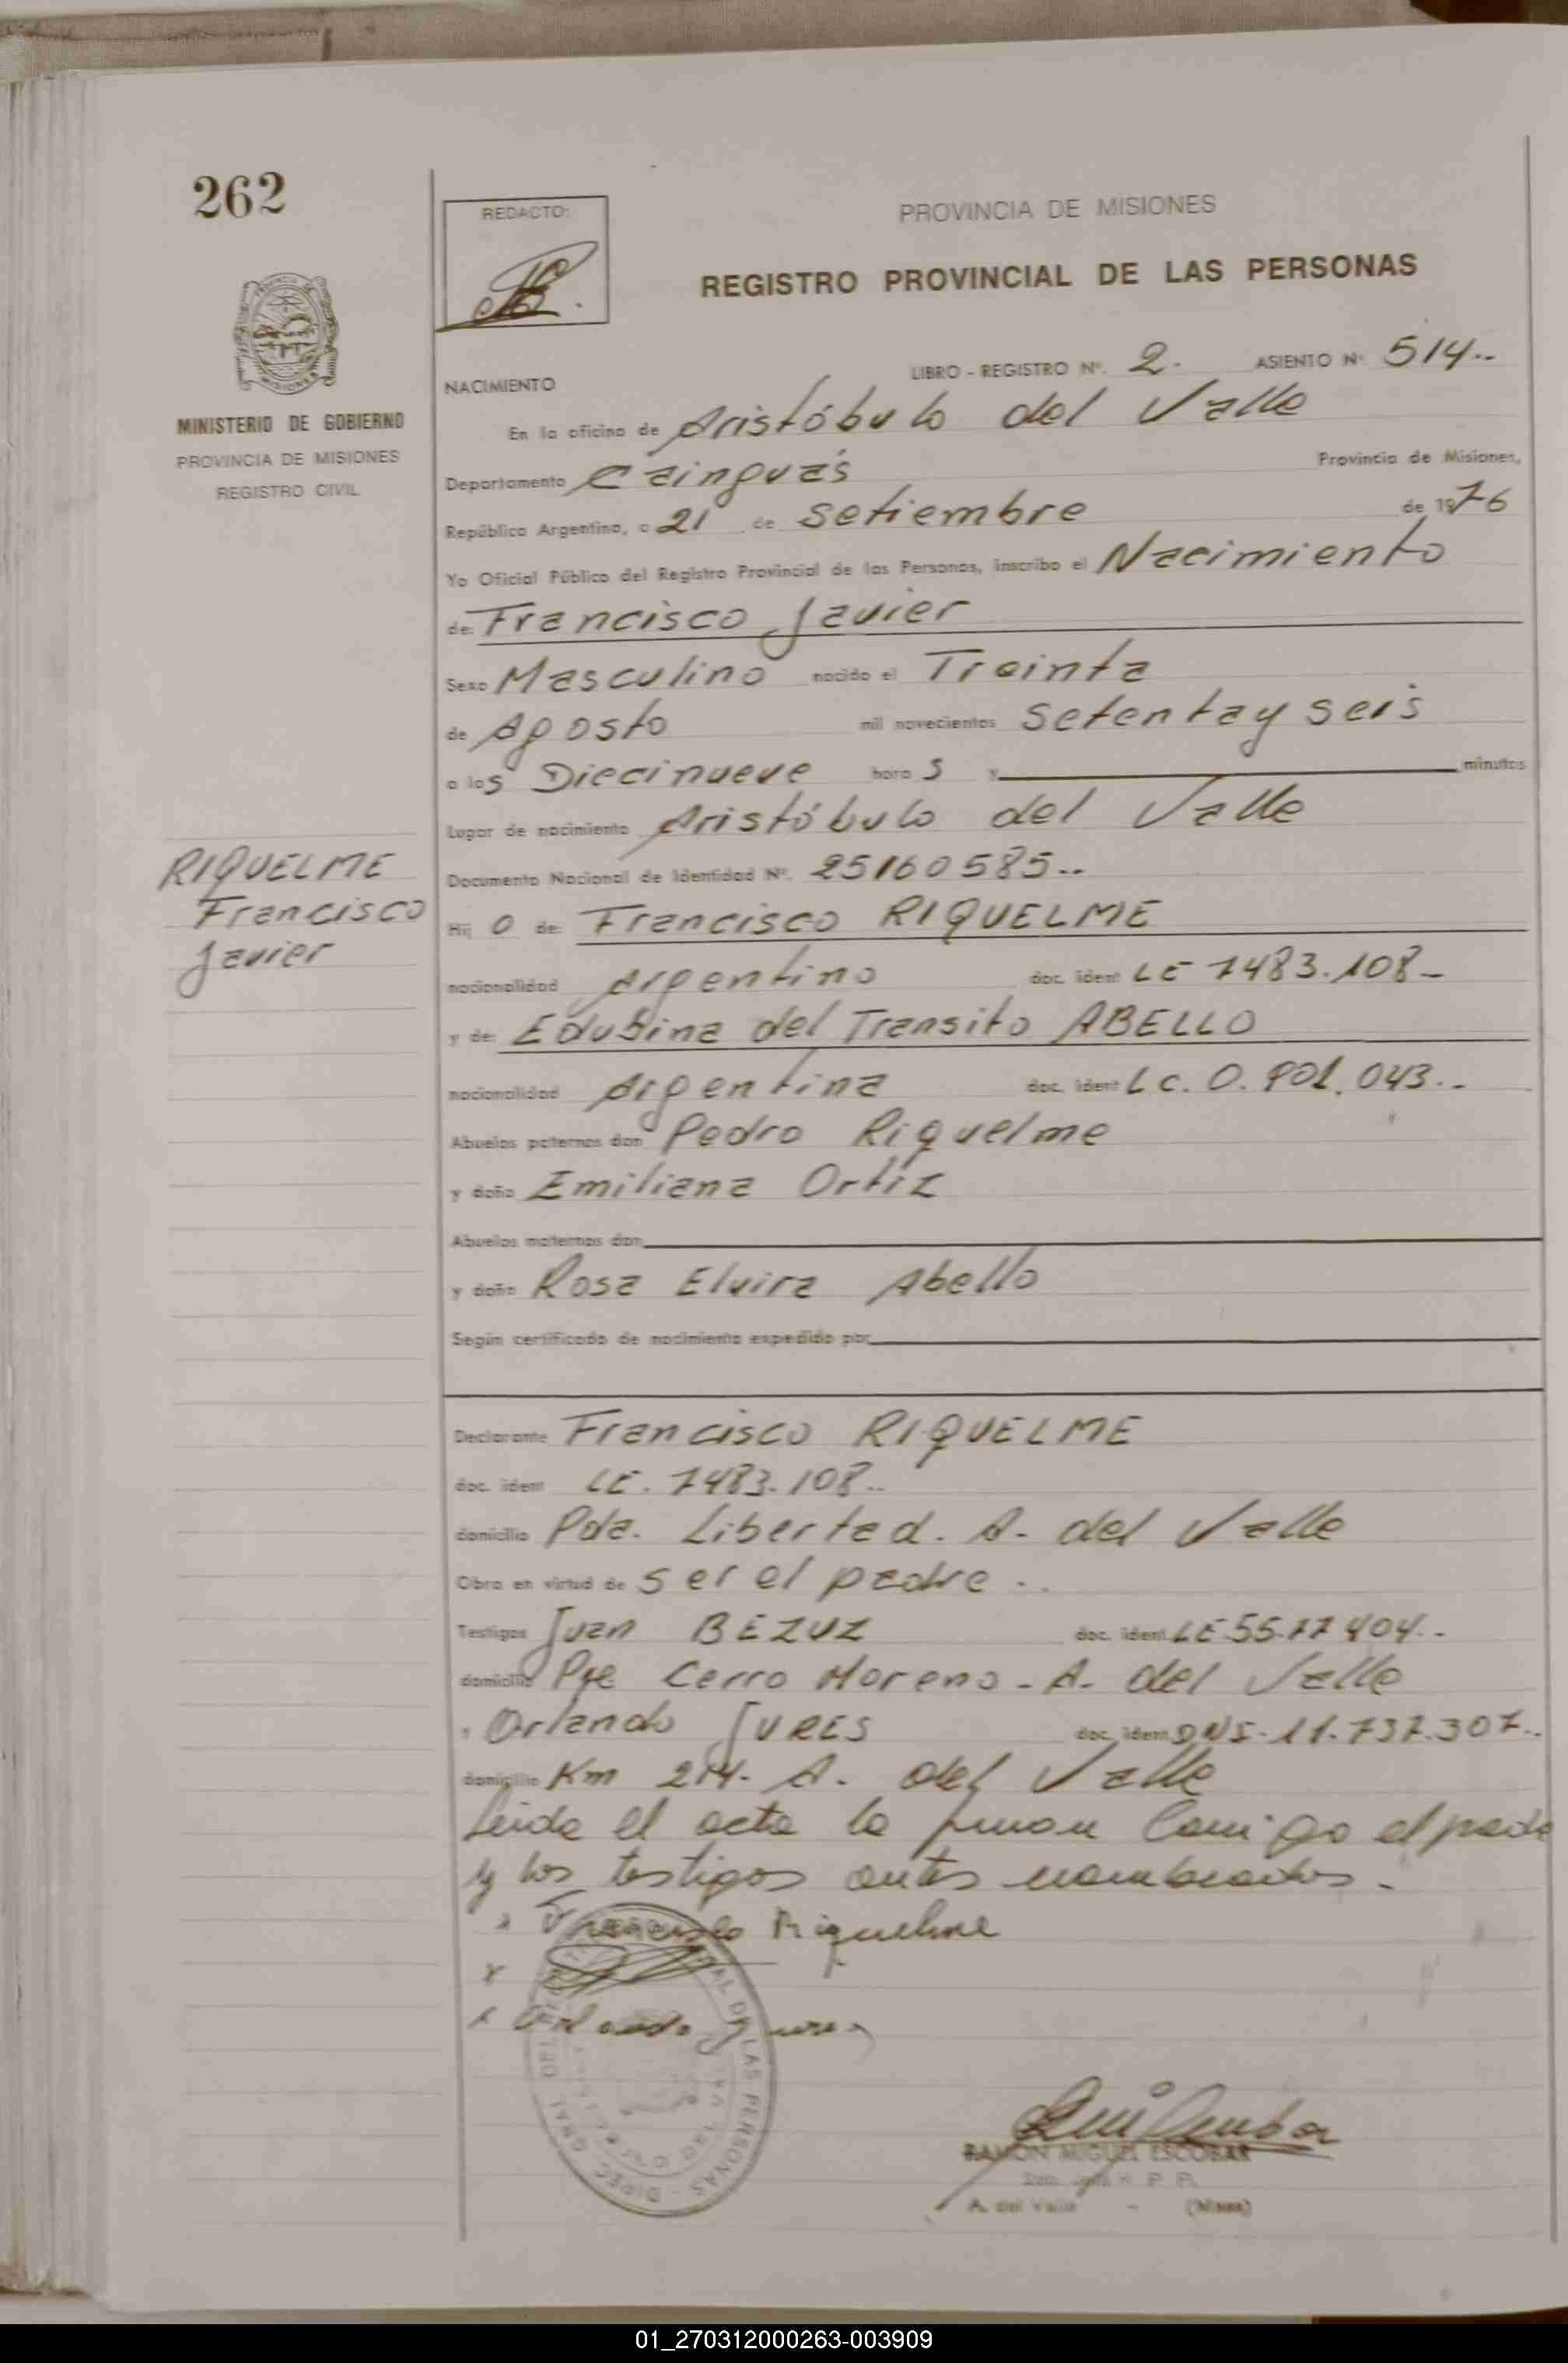 262
REDACTO:
PROVINCIA DE MISIONES
REGISTRO PROVINCIAL DE LAS PERSONAS
MINISTERIO DE GOBIERNO
PROVINCIA DE MISIONES
REGISTRO CIVIL
LIBRO - REGISTRO Nº. 2. ASIENTO Nº 514..
NACIMIENTO
En la oficina de Aristóbulo del Valle
Departamento Cainguás Provincia de Misiones,
República Argentina, a 21 de Setiembre de 1976
Yo Oficial Público del Registro Provincial de las Personas, inscribo el Nacimiento
de: Francisco Javier
Sexo Masculino nacido el Treinta
de Agosto mil novecientos Setenta y seis
a las Diecinueve horas y minutos
Lugar de nacimiento Aristóbulo del Valle
RIQUELME
Francisco
Javier
Documento Nacional de Identidad Nº. 25160585..
Hijo de: Francisco RIQUELME
nacionalidad Argentino doc. ident LE 7483.108-
y de: Edubina del Transito ABELLO
nacionalidad Argentina doc. ident LC. 0.901.043..
Abuelos paternos don Pedro Riquelme
y doña Emiliana Ortíz
Abuelos maternos don
y doña Rosa Elvira Abello
Según certificado de nacimiento expedido por
Declarante Francisco RIQUELME
doc. ident LE. 7483.108..
domicilio Pda. Libertad. A. del Valle
Obra en virtud de ser el padre..
Testigos Juan BEZUZ doc. ident LE 55.77404..
domicilio Pje Cerro Moreno - A. del Valle
y Orlando JURES doc. ident DNI-11.737.307..
domicilio Km 214. A. del Valle
Leida el acta la firman Conmigo el padre
y los testigos antes nombrados.
Francisco Riquelme
Orlando Jures
DE LAS PERSONAS
RAMON MIGUEL ESCOBAR
R. P. P.
A. del Valle - (Mnes)
01_270312000263-003909